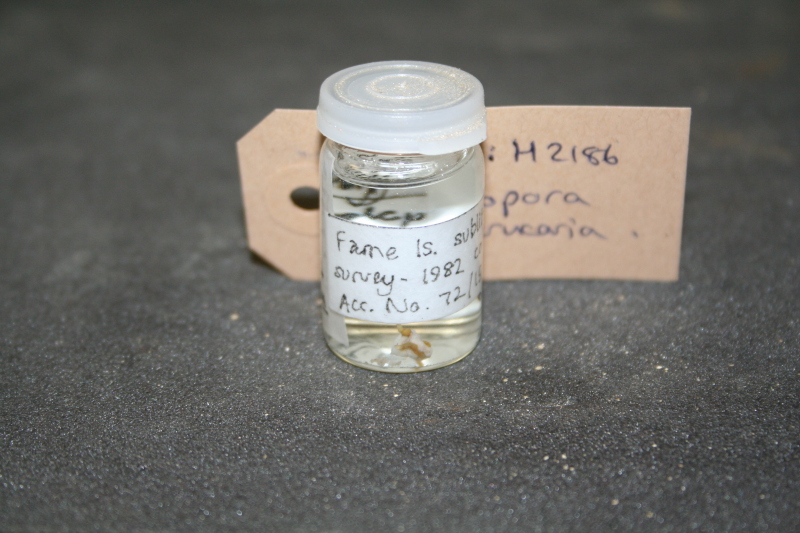 : H2186
opora
rucaria .
Farne Is. subli
survey - 1982 c
Acc. No. 72/18